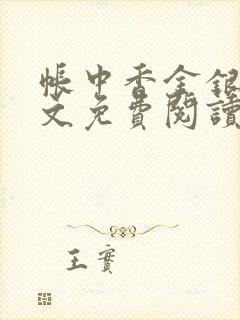 帳中香金銀
文免費閱讀
王實